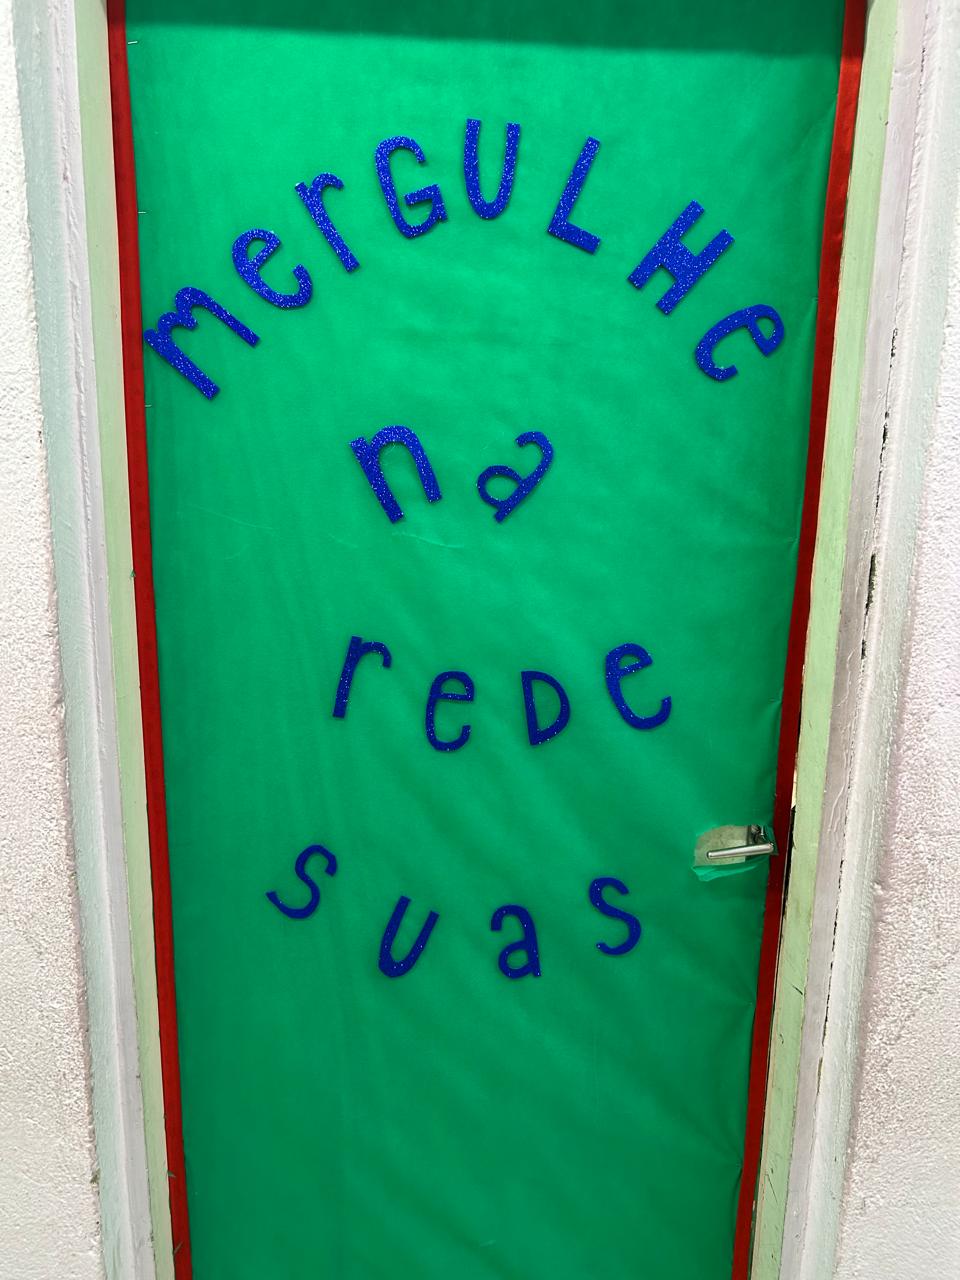 merGULHe
na
reDe
suas